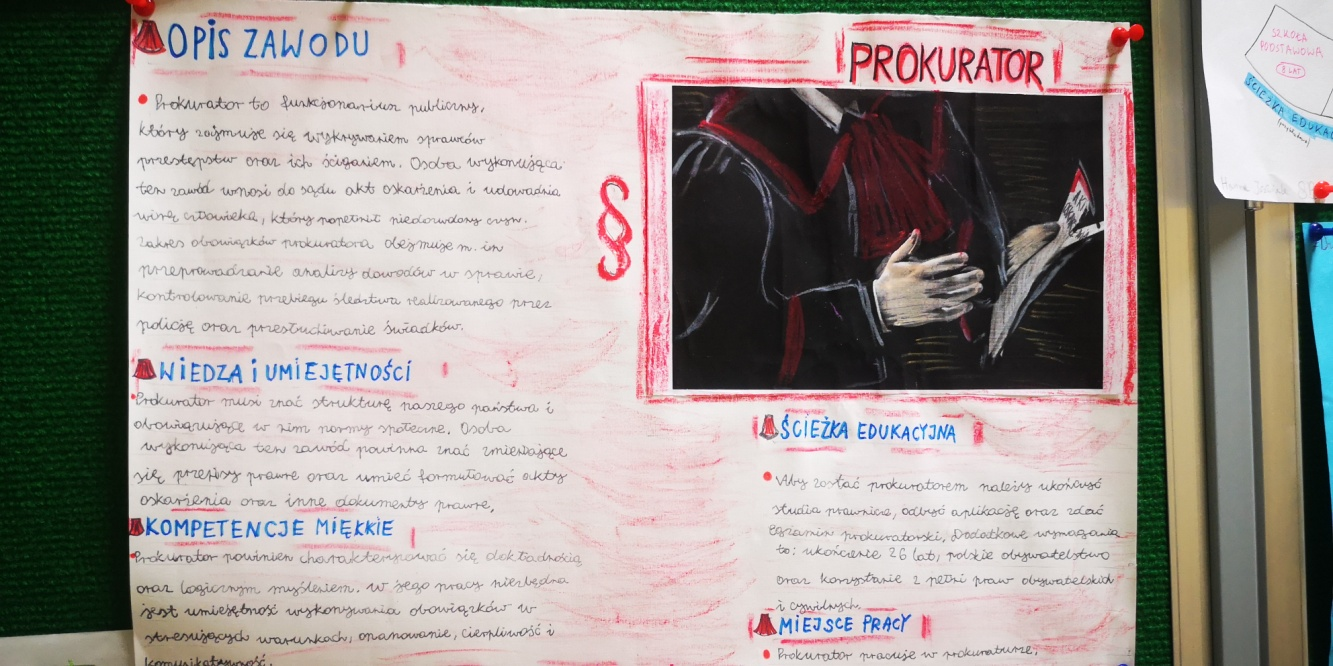 OPIS ZAWODU
Prokurator to funkcjonariusz publiczny,
który zajmuje się wykrywaniem sprawców
przestępstw oraz ich ściganiem. Osoba wykonująca
ten zawód wnosi do sądu akt oskarżenia i udowadnia
winę człowieka, który popełnił niedozwolony czyn.
Zakres obowiązków prokuratora obejmuje m.in
przeprowadzanie analizy dowodów w sprawie,
kontrolowanie przebiegu śledztwa realizowanego przez
policję oraz przesłuchiwanie świadków.
WIEDZA i UMIEJĘTNOŚCI
Prokurator musi znać strukturę naszego państwa i
obowiązujące w nim normy społeczne. Osoba
wykonująca ten zawód powinna znać zmieniające
się przepisy prawne oraz umieć formułować akty
oskarżenia oraz inne dokumenty prawne.
KOMPETENCJE MIĘKKIE
Prokurator powinien charakteryzować się dokładnością
oraz logicznym myśleniem. W jego pracy niezbędna
jest umiejętność wykonywania obowiązków w
stresujących warunkach, opanowanie, cierpliwość i
komunikatywność.
PROKURATOR
§
AKT
ŚCIEŻKA EDUKACYJNA
Aby zostać prokuratorem należy ukończyć
studia prawnicze, odbyć aplikację oraz zdać
Egzamin prokuratorski. Dodatkowe wymagania
to: ukończenie 26 lat, polskie obywatelstwo
oraz korzystanie z pełni praw obywatelskich
i cywilnych.
MIEJSCE PRACY
Prokurator pracuje w prokuraturze,
SZKOŁA
PODSTAWOWA
8 LAT
ŚCIEŻKA EDUKA